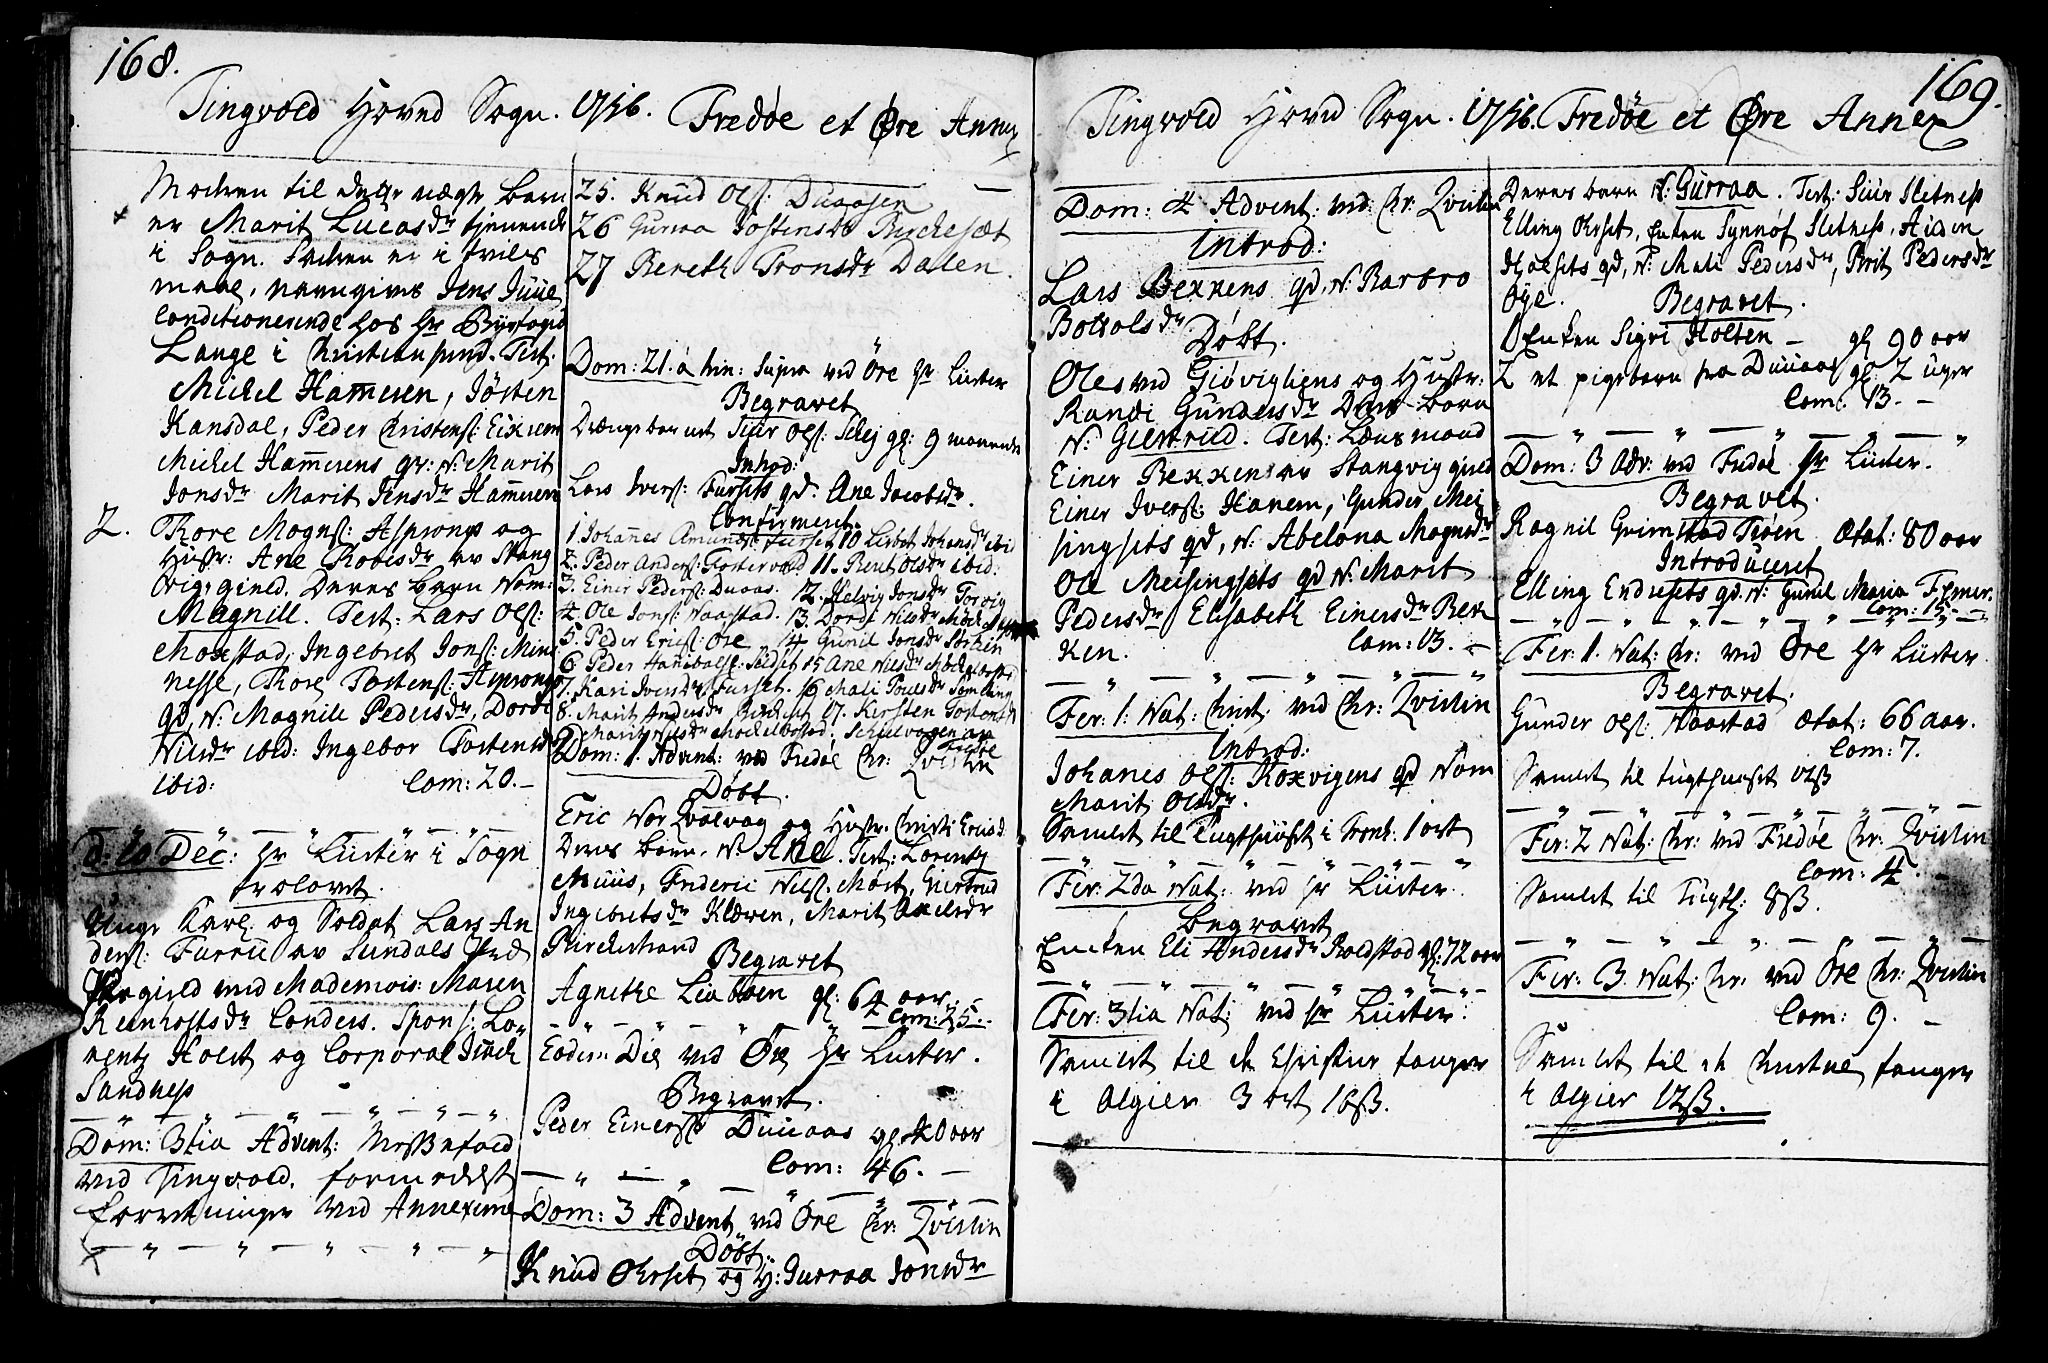 168.
Tingvold Hovud Sogn. 1756. Fredøe et Øre Annex
Modren til dette uægte barn
er Marit Lucasdr tjenende
i Sogn. Fadren er i tvils
maal, navngives Jens Juue
Conditionerende hos Hr Byefogd
Lange i Christiansund. Test.
Mickel Hammeren, Jøsten
Kansdal, Peder Christens:
Mickel Hammerens qv: N: Marit
Jonsdr Marit Jensdr Hammeren
2. Thore Mogns: Asprong og
Hustr: Ane Robesdr av Stang
vig, gield. Deres barn Nom:
Magnill. Test: Lars Ols:
Moxstad, Ingebret Jons: Mine
nesse, Thore Tostens: Asprong
qd, N: Magnill Pedersdr, Dordi
Nilsdr ibid: Ingebor Tostensdr
ibid: Com: 20.-
d: 10 Dec: Hr Lüster i Sogn
trolovet.
Unge Karl og Soldat Lars An
ders: Furru av Sundals Præ
stegield med Mademois: Maren
Reinholtsdr Conders. Spons: Lo-
rentz Holst og Corporal
Sandness
Dom: 3tia Advent: Messefald
ved Tingvold, formedelst
forretninger ved Annexerne
25. Knud Ols: Duaasen
26 Gurraa Tostensdr Birckesæt
27 Bereth Tronsdr Dalen.
Dom: 21. a trin: Supra ved Öre Hr Lüster
Begravet
Drængebarnet Siur Ols: gl: 9 maaneder
Introd:
Lars Ivers: Fursets qd. Ane Jacobsdr.
Confirmeret.
1. Johannes Amunds: Furset 10 Lisbet Johansdr ibid
2. Peder Anders: Fostervold 11. Beret Olsdr ibid:
3. Einer Peders: Duaas. 12. Helvig Jonsdr Torvig
4. Ole Jons: Naastad. 13. Dordi Nilsdr
5. Peder Erics: Øre 14 Gunil Jonsdr
6. Peder Hanibals: 15 Ane Nilsdr
7. Kari Iversdr Furset. 16 Mali Poulsdr
8. Marit Andersdr Birckeset 17. Kirsten Tostensdr
Marit Nilsdr
Dom: 1. Advent: ved Fredöe Chr: Qvistin
Døbt.
Eric Nor Qvalvog og Hustr. Christi Ericsd.
Deres barn. N: Ane. Test: Lorentz
Muus, Frideric Nils: Møst, Giertrud
Ingebretsdr Kløven, Marit
Birckestrand
Begravet
Agnethe gl: 64 aar.
Com: 25.
Eodem Die ved Øre Hr Luster.
Begravet.
Peder Einers: Duuaas gl. 40 aar
Com: 46. -
Dom: 3 Advent ved Øre Chr: Qvistin
Døbt:
Knud Ohrset og H: Gurraa Jonsdr
169.
Tingvold Hovud Sogn. 1756. Fredöe et Øre Annex
Dom: 4 Advent: ved Chr: Qvistin
Introd:
Lars Bekkens qd. N: Barbro
Botolsdr
Döbt.
Ole ved Giövigliens og Hustr:
Randi Gundersdr Deres barn
N: Giertrud. Test: Lænsmand
Einer Bekken av Stangvig gield
Einer Ivers: Hanem, Gunder Mei
singsets qd, N: Abelona Mognsdr
Ole Meisingsets qd N: Marit
Pedersdr Elisabeth Einersdr Bek
ken. Com: 13. -
Fer: 1: Nat: Christ. ved Chr: Qvistin
Introd:
Johanes Ols: Koxvigens qd Nom
Marit Olsdr.
Samlet til Tugthuuset i Tronh: 1 ort
Fer: 2da Nat: ved Hr Lüster.
Begravet
Encken Eli Andersdr Boldstad gl: 72 aar
Fer: 3tia Nat: ved Hr Lüster.
Samlet til de Christne fanger
i Algier 3 ort 16ß.
Deres barn N: Gurraa. Test: Siur Sletness
Elling Ohrset, Enken Synnöf Sletness,
Hjelsets qd, N: Mali Pedersdr, Brit Pedersdr
Öye.
Begravet.
1 Enken Sigri Holten - gl 90 aar
2 et pigebarn fra Duuaas gl: 2 uger
Com: 13. -
Dom: 3 Adv: ved Fredöe Hr Lüster.
Begravet.
Ragnil Grimstad Ætat: 80 aar
Introduceret
Elling Endresets qd. N: Gunil Maria
Com: 15.
Fer: 1. Nat: Chr: ved Øre Hr Lüster
Begravet.
Gunder Ols: Naastad Ætat: 66 aar.
Com: 7.
Samlet til tugthuuset 12ß
Fer: 2 Nat: Chr: ved Fredöe Chr: Qvistin
Com: 4. -
Samlet til Tugth: 8ß.
Fer: 3. Nat: Chr. ved Øre Chr: Qvistin
Com: 9. -
Samlet til de Christne fanger
i Algier 12ß.